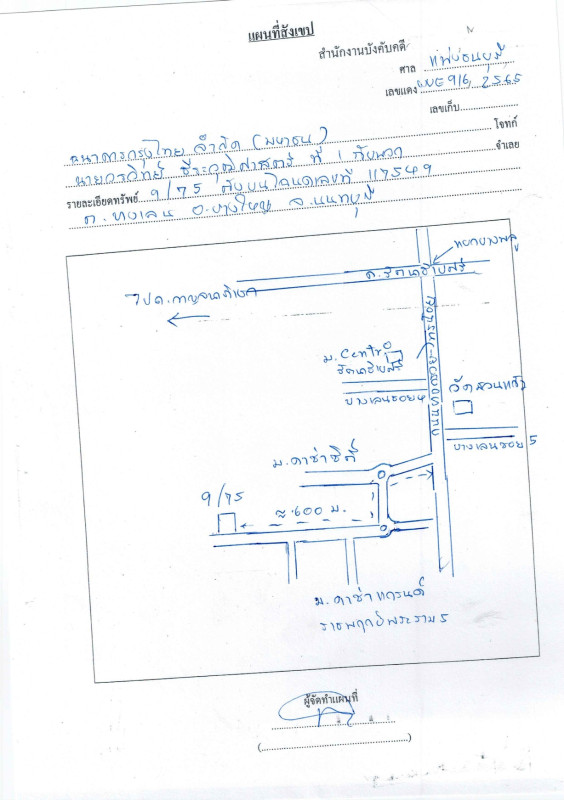 แผนที่สังเขป
สำนักงานบังคับคดี
ศาล แพ่งธนบุรี
เลขแดง ผบE916/2565
เลขเก็บ
ธนาคารกรุงไทย จำกัด (มหาชน) โจทก์
นายวรวิทย์ ที่ 1 กับพวก จำเลย
รายละเอียดทรัพย์ 9/75 ตั้งบนโฉนดเลขที่ 117549
ต. บางเลน อ.บางใหญ่ จ.นนทบุรี
แยกบางพลู
ถ.รัตนาธิเบศร์
ไปถ.กาญจนาภิเษก
ม. Centro
รัตนาธิเบศร์
บางเลนซอย 4
วัดสวนแก้ว
บางเลนซอย 5
ม.คาซ่าซิตี้
9/75
≈ 600 ม.
ม.คาซ่าแกรนด์
ราชพฤกษ์พระราม 5
ผู้จัดทำแผนที่